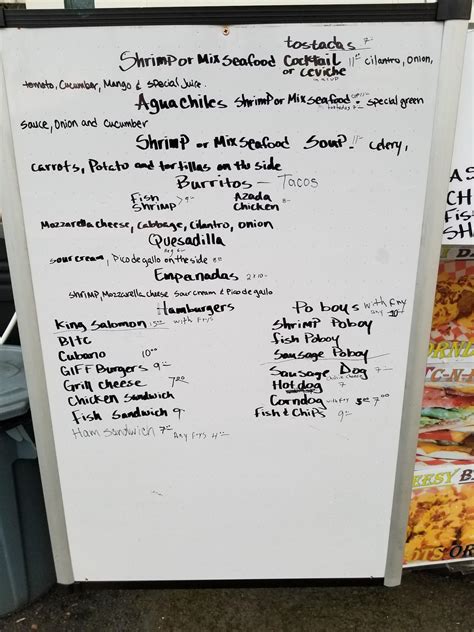 tostadas 7-
Shrimp or Mix seafood Cocktail 11- cilantro, onion,
or ceviche
tomato, Cucumber, Mango & special juice.
Aguachiles Shrimp or Mix seafood - special green
sauce, Onion and Cucumber
Shrimp or Mix Seafood Soup. 11- celery,
carrots, Potato and tortillas on the side
Burritos - Tacos
Fish 9- Azada
Shrimp Chicken 8-
Mozzarella cheese, Cabbage, Cilantro, onion
Quesadilla
sour cream, Pico de gallo on the side
Empanadas 2x10-
shrimp, Mozzarella cheese sour cream & Pico de gallo
Hamburgers
King Salomon with frys
Bltc
Cubano 10.00
GIFF Burgers 9-
Grill cheese 7.00
Chicken Sandwich
Fish Sandwich 9-
Ham Sandwich 7- Any frys 4-
Po boys with frny
any 10-
Shrimp Poboy
fish Poboy
Sausage Poboy
Sausage Dog 7-
Hotdog 7
Corndog 7.00
Fish & Chips 9-